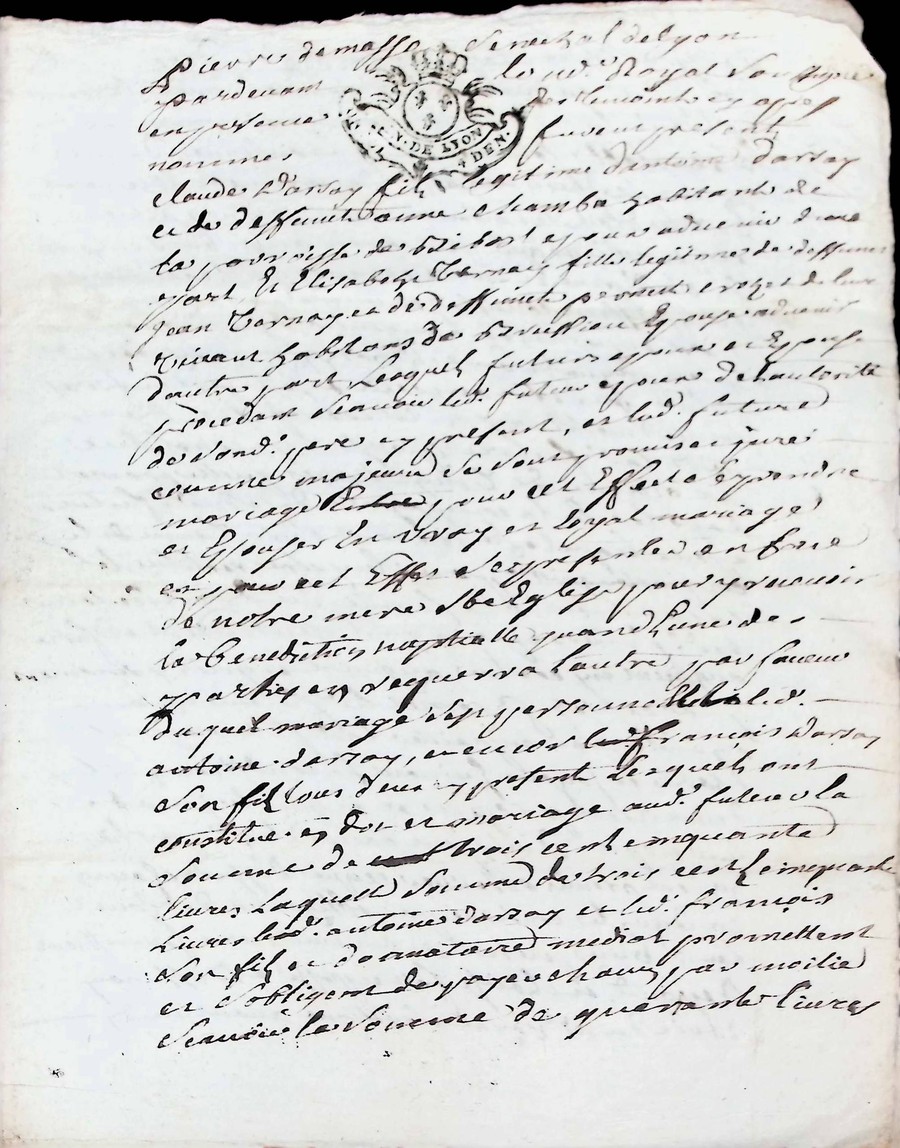 Pierre de masso Senechal de lyon
pardevant le no.re Royal Soussigne
en presence des temoins cy apres
nommes furent presents
GN. DE LYON
DEN.
claude darsay fils legitime d'antoine darsay
et de deffuncte anne chamba habitants de
la parroisse de epoux advenir d'une
part, Et Elisabeth Ternay fille legitime de deffunct
Jean Ternay et de deffuncte pernette de leur
vivant habitans de brussieu Epouse advenir
d'autre part Lesquels futurs epoux et Epouse
procedant Scavoir led. futur epoux de l'autorité
de Sond. pere cy present, et lad. future
comme majeure se sont promis et juré
mariage pour cet Effect de se prendre
et Epouser En vray et loyal mariage
et pour cet Effet se presenter en face
de notre mere Ste Eglise pour y recevoir
la benediction nuptialle quand l'une des
parties en requerra l'autre par faveur
du quel mariage s'est personnellement led.
antoine darsay, et encor françois darsay
son fils tous deux cy present Lesquels ont
constitué en dot et mariage aud. futur la
somme de trois cent cinquante
livres Laquelle somme de trois cent cinquante
livres led. antoine darsay et led. françois
son fils et donnataire mediat promettent
et s'obligent de payer chacun par moitie
Scavoir la somme de quarante livres